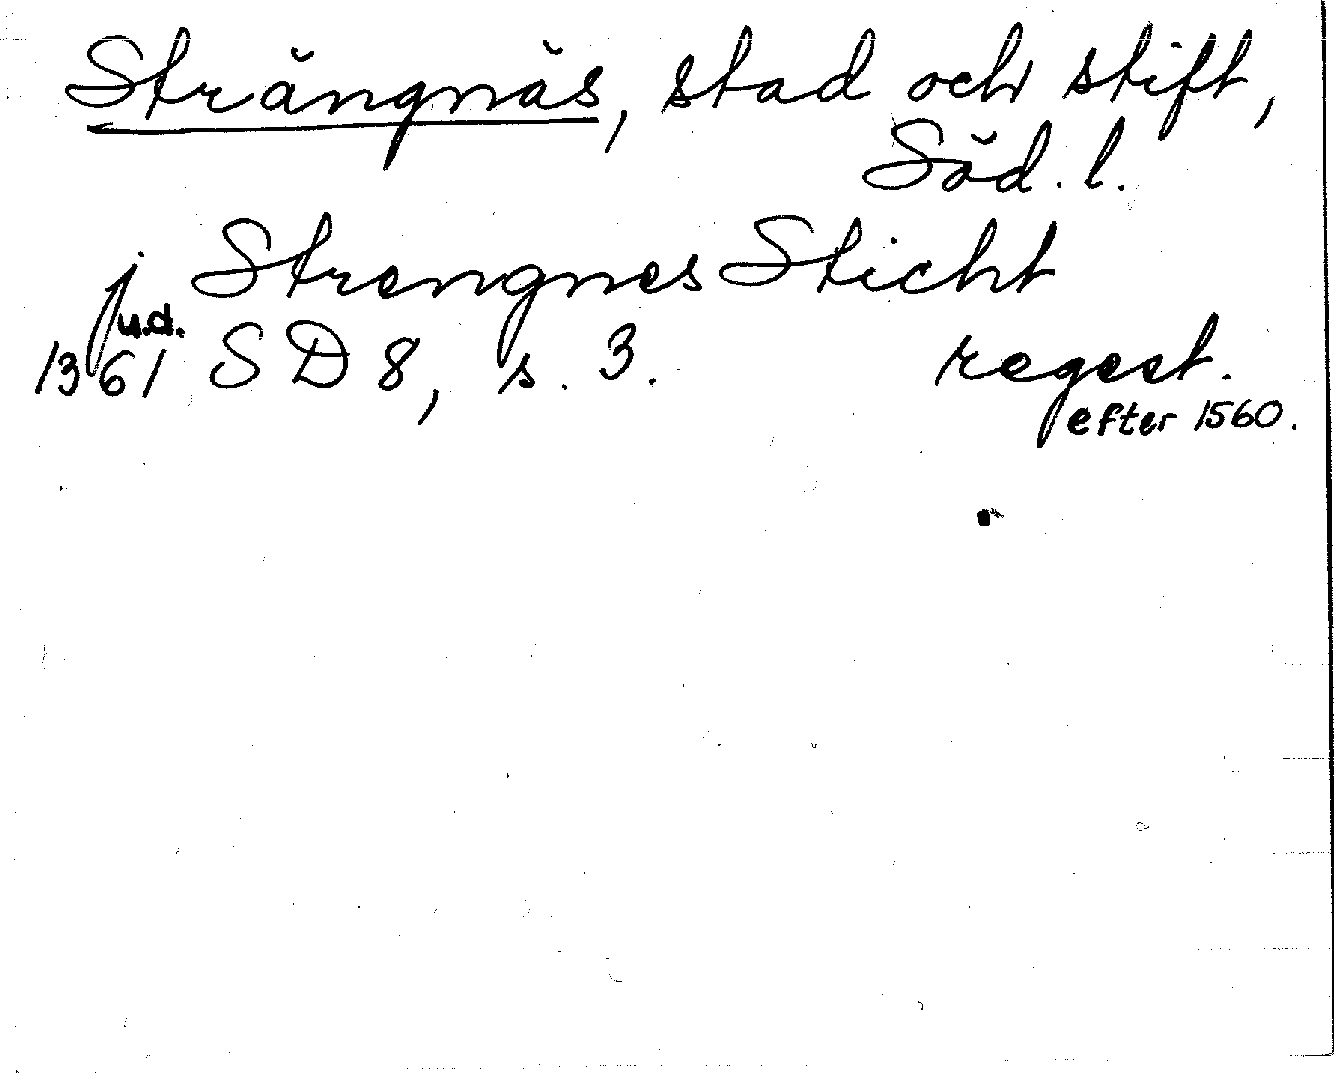 Strängnäs, stad och stift,
Söd. l.
j Strengnes Sticht
u.d.
1361 SD 8, s. 3. regest.
efter 1560.